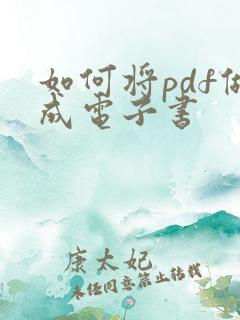 如何将pdf做
成电子书
康太妃
未经同意禁止转载